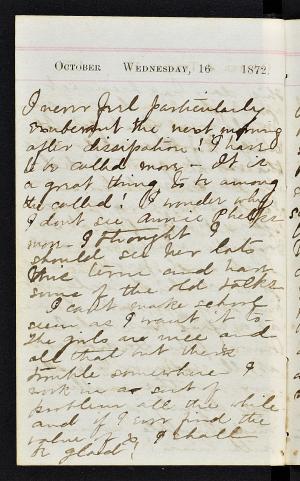 October Wednesday, 16 1872.
I never feel particularly
exuberant the next morning
after dissipation! I have
to be called more - It is
a great thing to be among
the called! I wonder why
I don't see Annie Phelps
more - I thought I
should see her lots
this time and have
some of the old talks
I can't make school
seem as I want it to -
The girls are nice and
all that but there's
trouble somewhere I
work in a sort of
problem all the while
and if I ever find the
value of x I shall
be glad!